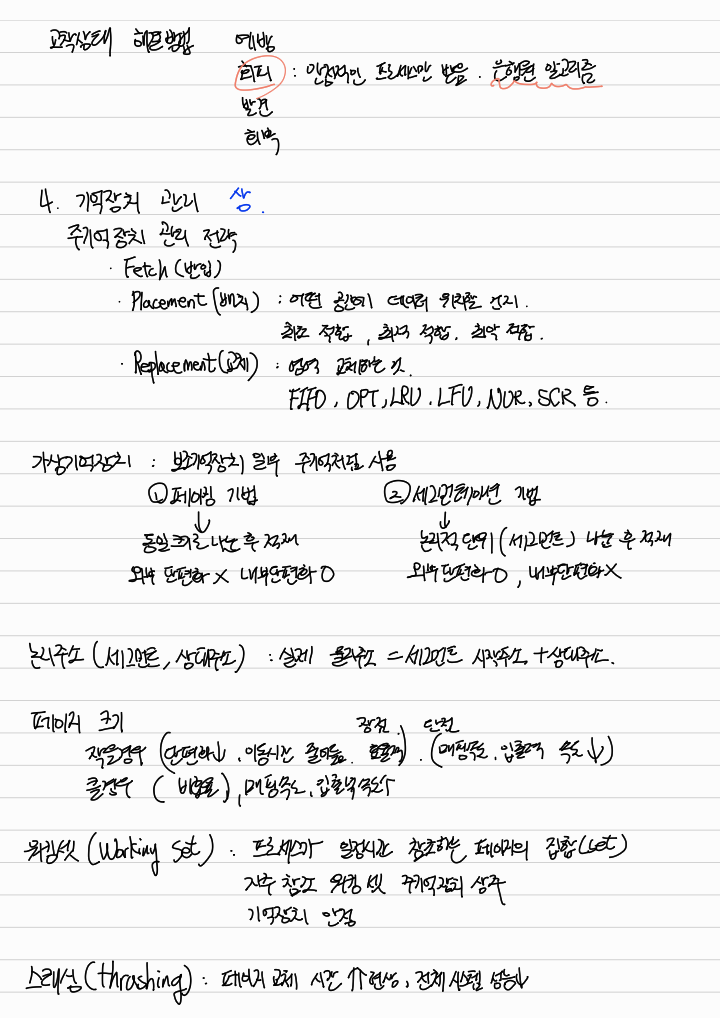 교착상태 해결방법 예방
회피 : 안정적인 프로세스만 받음. 은행원 알고리즘
발견
회복
4. 기억장치 관리 상.
주기억장치 관리 전략
· Fetch (반입)
· Placement (배치) : 어떤 공간에 데이터 위치할 건지.
최초 적합, 최적 적합. 최악 적합.
· Replacement (교체) : 영역 교체하는 것.
FIFO, OPT, LRU. LFU, NUR, SCR 등.
가상기억장치 : 보조기억장치 일부 주기억처럼 사용
① 페이징 기법 ② 세그먼테이션 기법
↓ ↓
동일크기로 나눈 후 적재 논리적 단위 (세그먼트) 나눈 후 적재
외부 단편화 X 내부단편화 O 외부 단편화 O, 내부단편화 X
논리주소 (세그먼트, 상대주소) : 실제 물리주소 = 세그먼트 시작주소 + 상대주소.
페이지 크기 장점. 단점
작을경우 (단편화↓, 이동시간 줄어듦. 효율적). (매핑속도, 입출력 속도↓)
클경우 (비효율), 매핑속도, 입출력속도↑
워킹셋 (Working Set) : 프로세스가 일정시간 참조하는 페이지의 집합(set)
자주 참조 워킹 셋 주기억장치 상주
기억장치 안정
스래싱 (thrashing) : 페이지 교체 시간 ↑↑ 현상, 전체 시스템 성능↓